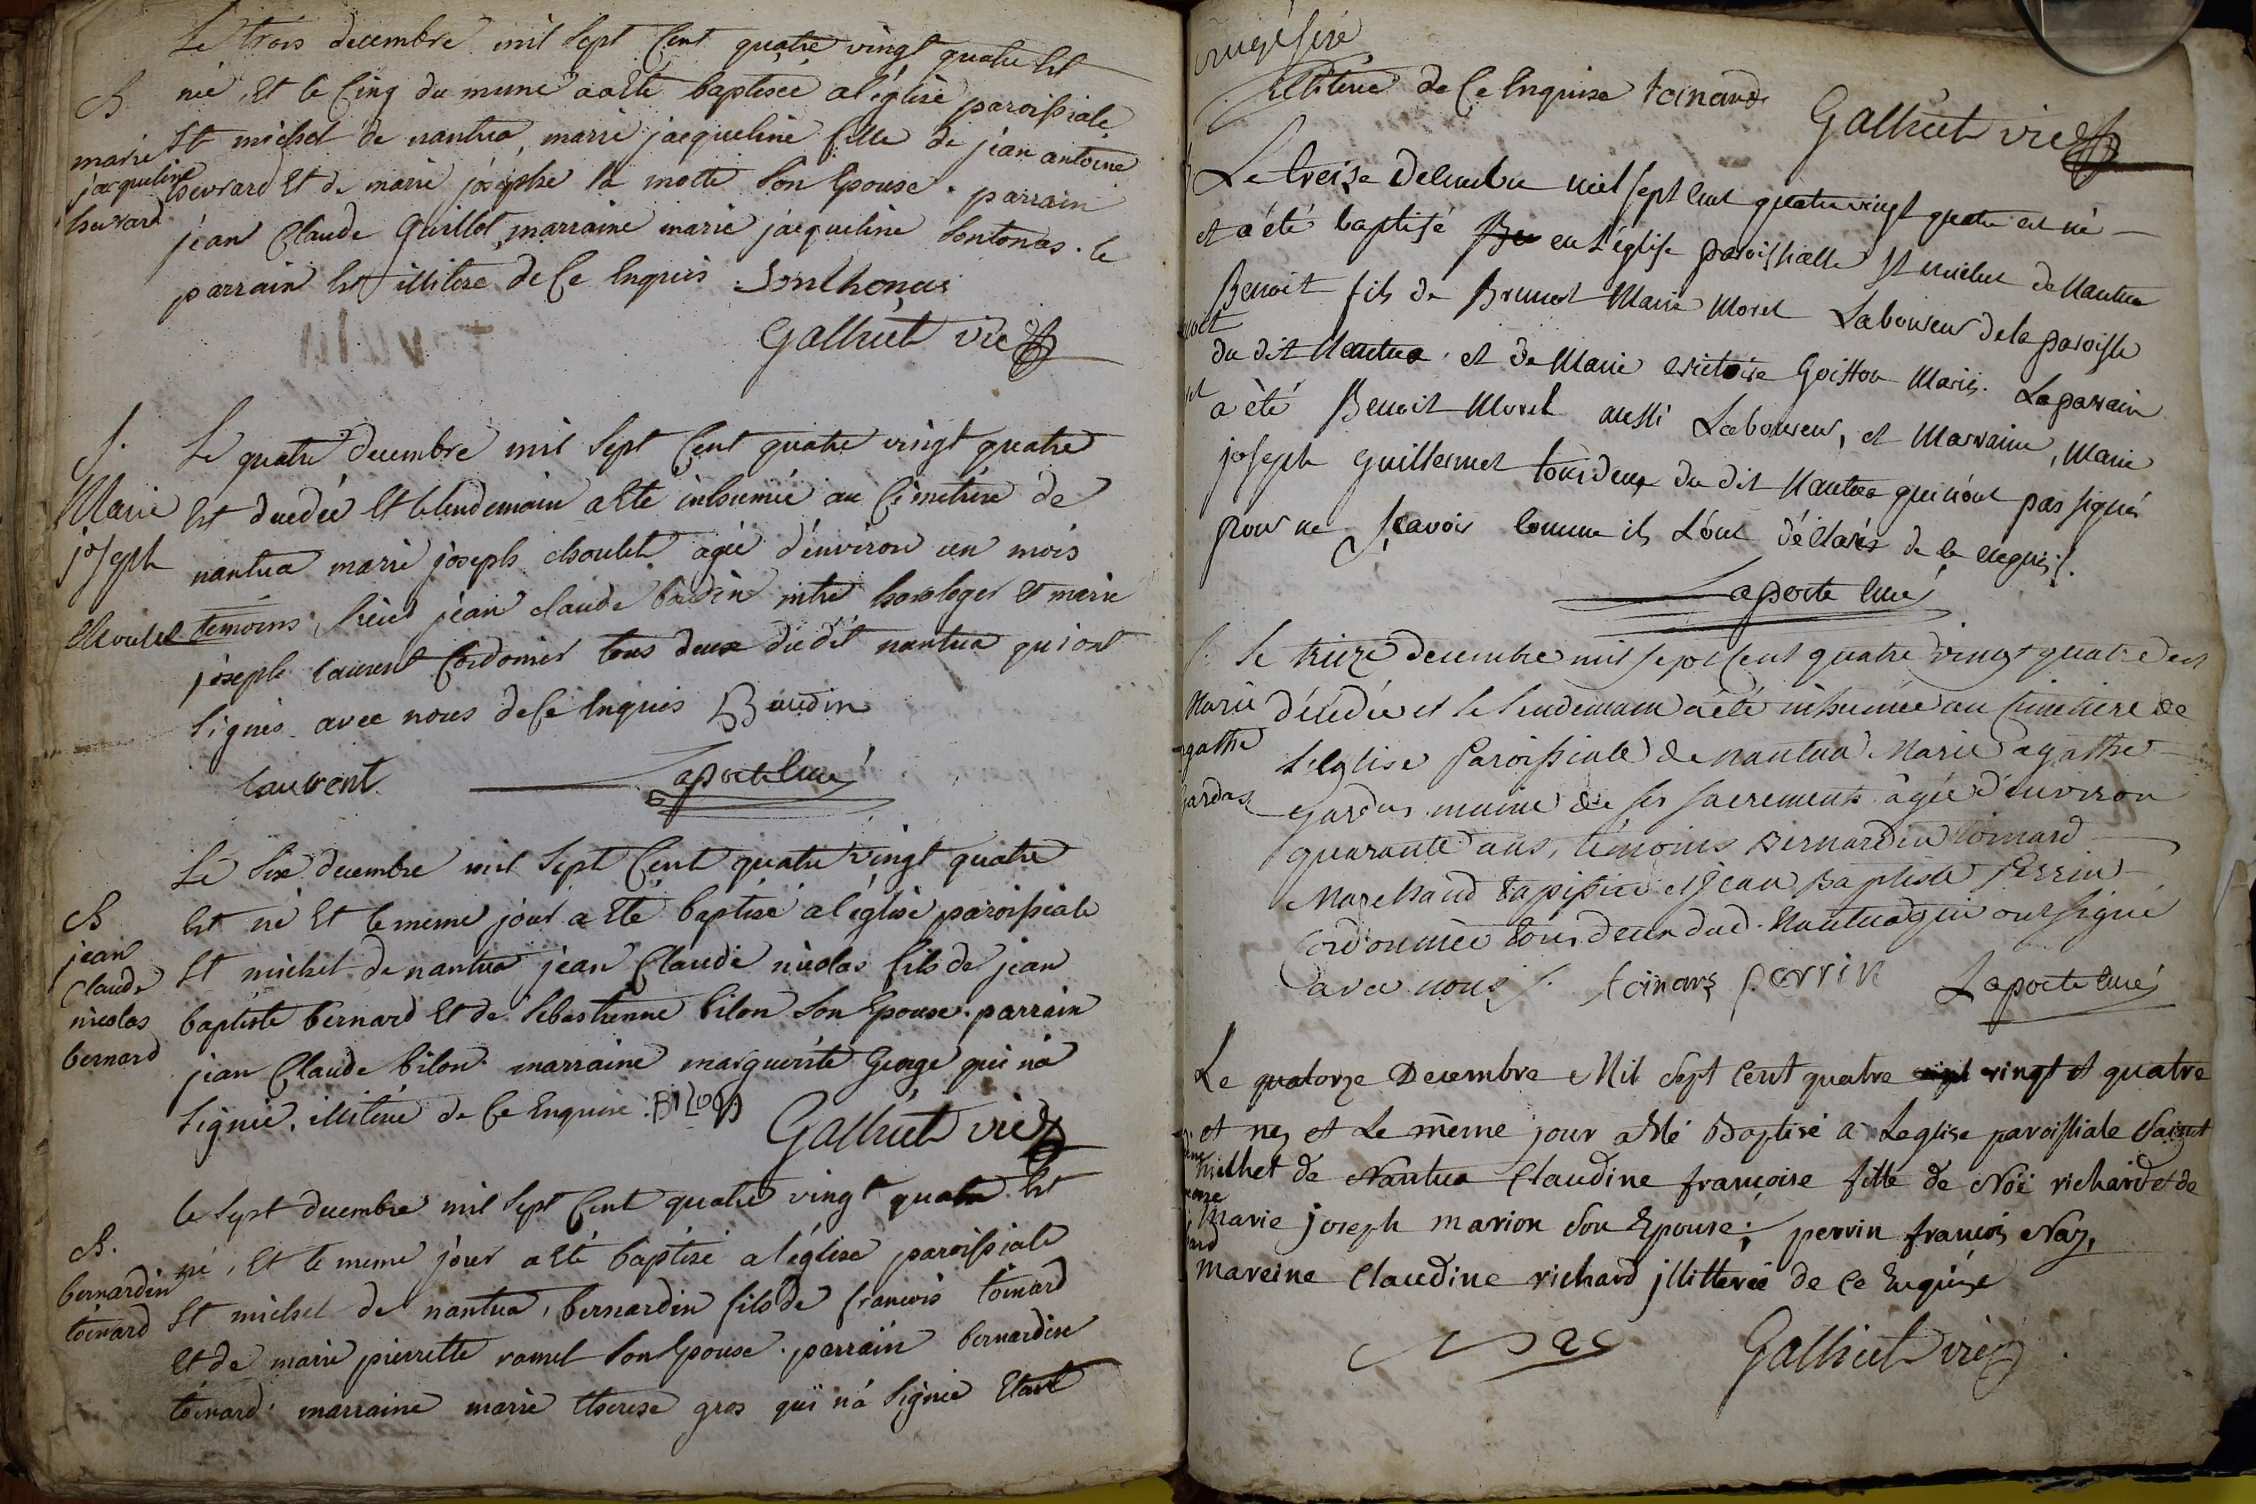 Le trois decembre mil Sept Cent quatre vingt quatre Est
B née, Et le Cinq du meme a Eté baptisée a l'église paroissiale
marie jacqueline St michel de nantua, marie jacqueline fille de jean antoine
Et de marie josephe la motte Son Epouse. parrain
jean Claude Guillot, marraine marie jacqueline Sontonas. le
parrain Est illitere de Ce Enquis Sonthonas
Galliet vic
S. Le quatre decembre mil Sept Cent quatre vingt quatre
Marie Est decedée Et le lendemain a Eté inhumée au Cimetiere de
joseph nantua marie joseph choulet agée d'environ un mois
choulet temoins, Sieurs jean claude baudin mtre horloger Et marie
joseph laurent Cordonier tous deux dudit nantua qui ont
Signés avec nous de Ce Enquis Baudin
laurent Laporte Curé
Le Six decembre mil Sept Cent quatre vingt quatre
B Est né Et le meme jour a Eté baptisé a l'église paroissiale
jean St michel de nantua jean Claude nicolas fils de jean
Claude
nicolas baptiste bernard Et de Sebastienne bilon Son Epouse. parrain
bernard jean Claude bilon marraine marguerite George qui n'a
Signée, illiterée de Ce Enquise. BILON
Galliet vic
le Sept decembre mil Sept Cent quatre vingt quatre Est
B. né, Et le meme jour a Eté baptisé a l'église paroissiale
bernardin St michel de nantua, bernardin fils de francois toinard
toinard Et de marie pierrette ramel Son Epouse. parrain bernardin
toinard. marraine marie therese gros qui n'a Signée Etant
illiterée de Ce Enquise toinard
Galliet vic
Le treize Decembre mil sept cent quatre vingt quatre est né
et a été baptisé en l'église paroissialle St michel de Nantua
Benoit fils de Brunet Marie Morel Laboureur de la paroisse
du dit Nantua et de Marie Victoire Goiffon Mariés. Le parrain
a été Benoit Morel aussi Laboureur, et Marraine, Marie
joseph Guillermet tous deux du dit Nantua qui n'ont pas signés
pour ne scavoir comme ils l'ont déclarés de ce enquis.
Laporte Curé
Le treize decembre mil sept cent quatre vingt quatre est
Marie décédée et le lendemain a été inhumée au cimetiere de
agathe l'eglise Paroissiale de nantua Marie agathe
gardas gardas munie de ses sacrements âgée d'environ
quarante ans, témoins Bernardin toinard
Marchand tapissier et Jean Baptiste Perrin
Cordonnier tous deux dud. Nantua qui ont signé
avec nous. toinard perrin Laporte Curé
Le quatorze Decembre Mil Sept Cent quatre vingt et quatre
et ney et Le même jour a Eté Baptisé a Leglise paroissiale Saint
Michet de Nantua Claudine françoise fille de Noë richard et de
Marie joseph marion Son Epouse; perrin françois Naz,
mareine Claudine richard jllitterée de Ce Enquise
Naz Galliet vic